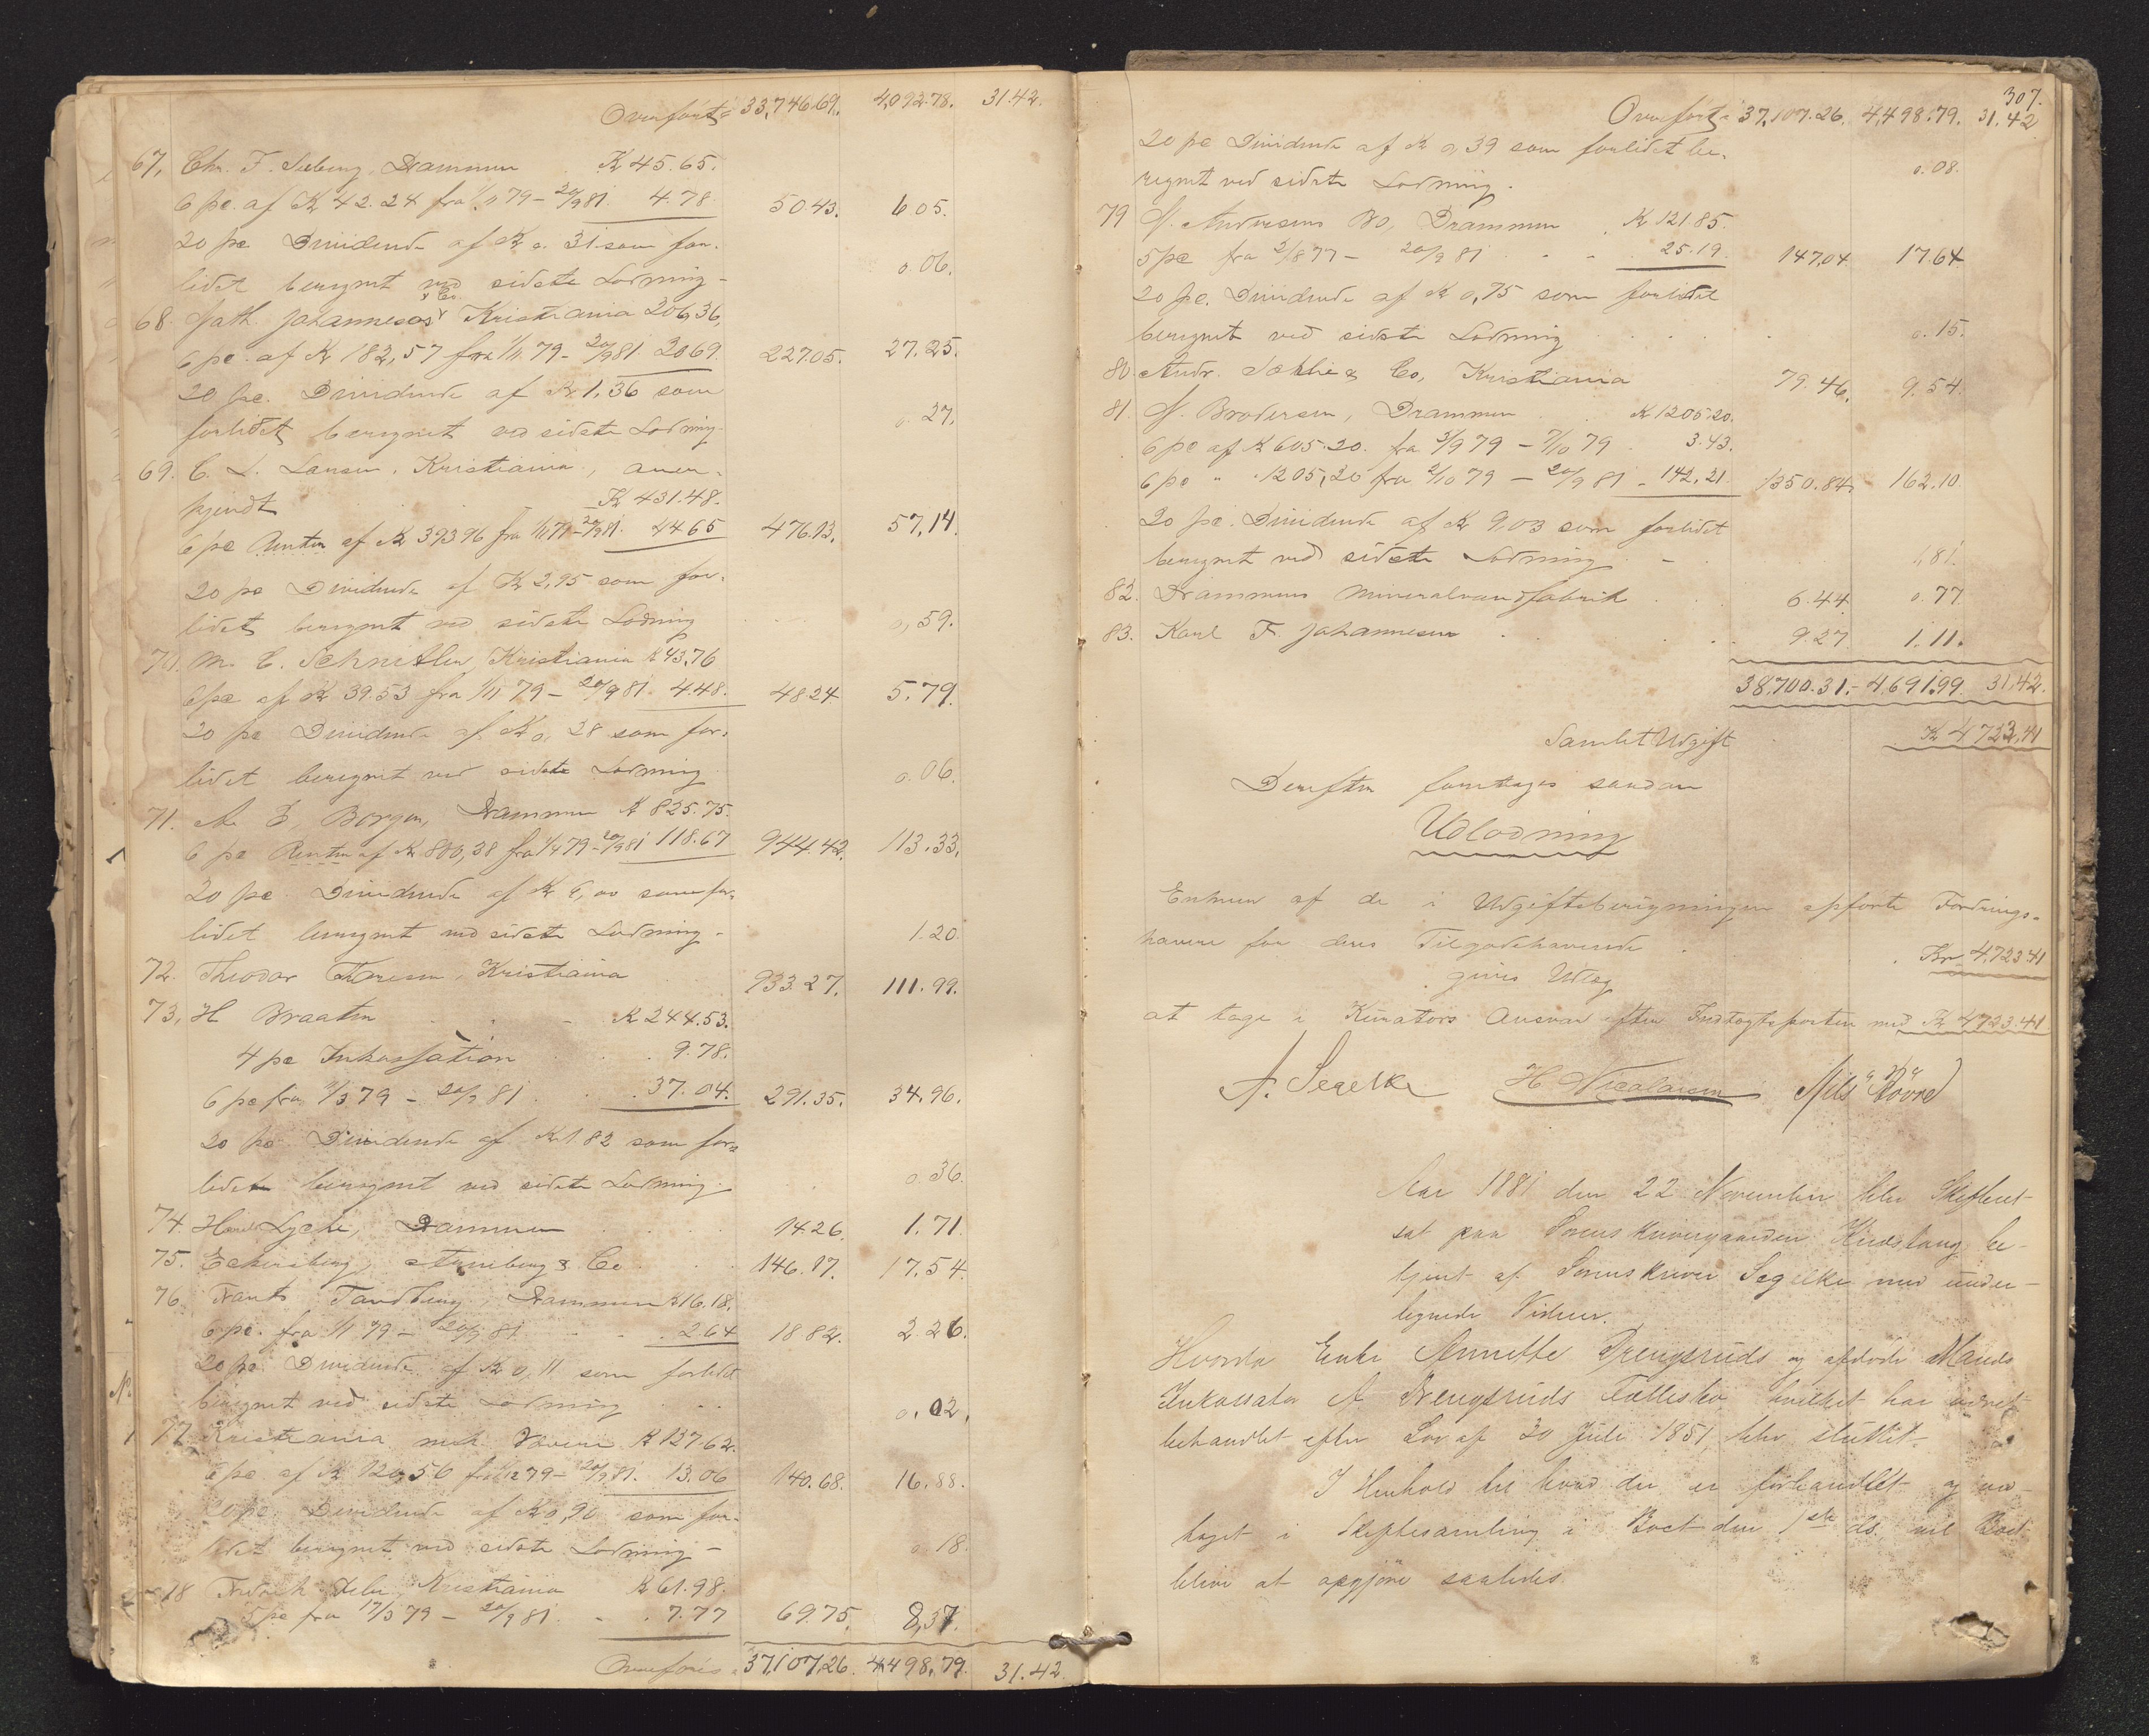 Overført 33,746.69. 4,092.78. 31.42.
67. Chr. F. Seeberg, Drammen K 45.65.
6 pc. af K 42.24 fra 1/11 79 – 20/9 81. 4.78 50.43. 6.05.
20 pc. Dividende af K 0.31 som for-
lidet beregnet ved sidste Lodning – 0.06.
68. Math. Johannesen & Co Kristiania 206,36,
6 pc. af K 182,57 fra 1/11 79 – 20/9 81. 20.69. 227.05. 27.25.
20 pc. Dividende af K 1,36 som
forlidet beregnet ved sidste Lodning 0.27.
69. C. L. Larsen, Kristiania, aner-
kjendt K 431.48.
6 pc Renter af K 393.96 fra 1/11 79 – 20/9 81. 44.65 476.13. 57,14.
20 pc Dividende af K 2,95 som for-
lidet beregnet ved sidste Lodning 0,59.
70. M. C. Schnitler, Kristiania K 43,76
6 pc af K 39.53 fra 1/11 79 – 20/9 81. 4.48. 48.24 5.79.
20 pc Dividende af K 0,28 som for-
lidet beregnet ved sidste Lodning 0.06.
71. E. Borgen, Drammen K 825.75.
6 pc Renter af K 800,38 fra 1/4 79 – 20/9 81 118.67 944.42. 113.33.
20 pc. Dividende af K 6,00 som for-
lidet beregnet ved sidste Lodning – 1.20.
72. Theodor Thoresen, Kristiania 933.27. 111.99.
73. H Braaten K 244.53.
4 pc Inkassation 9.78.
6 pc fra 79 – 20/9 81. 37.04. 291.35. 34.96.
20 pc Dividende af K 1.82 som for-
lidet beregnet ved sidste Lodning. 0.36.
74. Lyche, Drammen 14.26. 1.71
75. Eckersberg, & Co 146.17. 17.54.
76. Frants Tandberg, Drammen K 16.18.
6 pc. fra 1/1 79 – 20/9 81. 2.64 18.82. 2.26.
20 pc Dividende af K 0,11 som forlidet
beregnet ved sidste Lodning 0.02.
77. Kristiania mek. Væveri K 127.62.
6 pc af K 120,56 fra 79 – 20/9 81. 13.06 140.68. 16.88.
20 pc. Dividende af K 0,90 som for-
lidet beregnet ved sidste Lodning – 0.18.
78 Fredrik Kristiania K 61.98.
5 pc fra 17/3 79 – 20/9 81. 7.77 69.75. 8,37.
Overføres 37,107,26. 4,498,79. 31.42.
307.
Overført 37,107.26. 4,498.79. 31.42
20 pc Dividende af K 0,39 som forlidet be-
regnet ved sidste Lodning. 0.08.
79 Andersens Bo, Drammen K 121.85.
5 pc fra 2/8 77 – 20/9 81 25.19. 147,04 17.64
20 pc. Dividende af K 0,75 som forlidet
beregnet ved sidste Lodning 0.15.
80. Andr. & Co, Kristiania 79.46. 9.54.
81. Brodersen, Drammen K 1205.20.
6 pc af K 605.20. fra 3/9 79 – 7/10 79 3.43.
6 pc " 1205,20 fra 7/10 79 – 20/9 81 – 142.21. 1350.84. 162.10
20 pc. Dividende af K 9,03 som forlidet
beregnet ved sidste Lodning – 1,81.
82. Drammens Mineralvandfabrik 6.44 0.77.
83. Karl F. Johannesen 9.27 1.11.
38,700.31. – 4,691.99. 31,42.
Samlet Udgift K 4723,41
Derefter foretages saadan
Udlodning
Enhver af de i Udgiftsberegningen opførte Fordrings-
havere for deres Tilgodehavende Kr 4,723.41
gives Udlæg
at tage i Kurators Ansvar efter Indtægtsposten med K 4723.41
A. Segelke H Nicolaisen Nils Røvne
Aar 1881 den 22 November blev Skifteret
sat paa Sorenskrivergaarden be-
tjent af Sorenskriver Segelke med under-
tegnede Vidner.
Hvorda Enke Annette Drengsruds og afdøde Mands
Inkassator A Drengsruds Fællesbo hvilket har været
behandlet efter Lov af 30 Juli 1851, blev sluttet.
I Henhold til hvad der er forhandlet og ved-
taget i Skiftesamling i Boet den 1ste ds. vil Boet
blive at opgjøre saaledes.